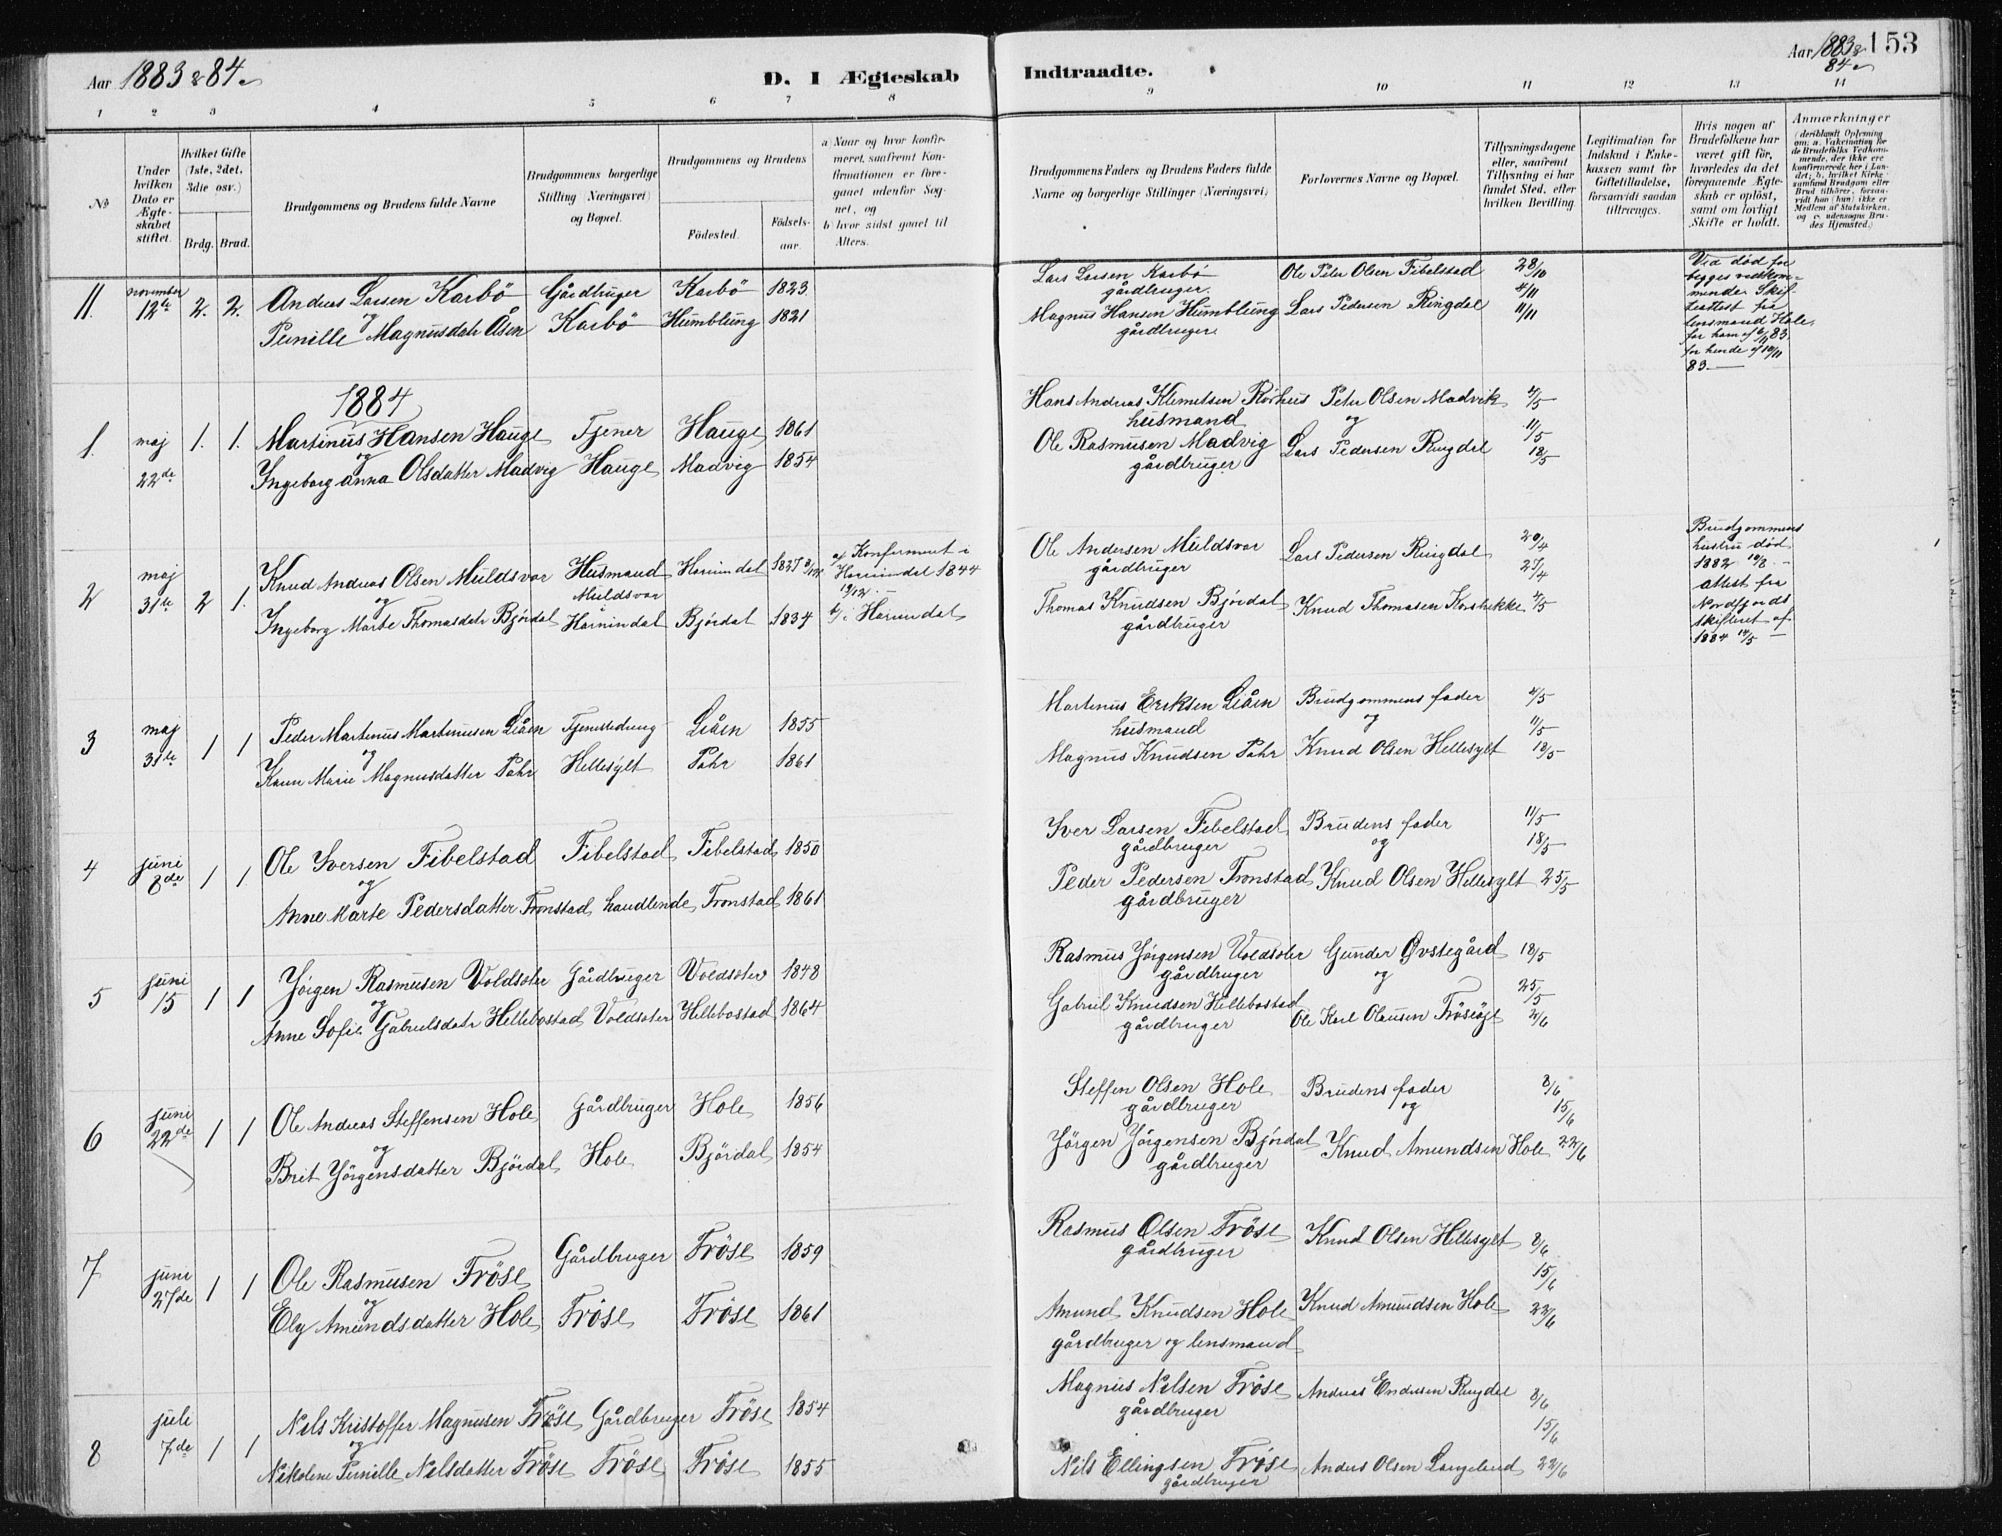 Aar 1883 & 84.
D. I Ægteskab Indtraadte.
Aar 1883 & 84. 153
1 2 3 4 5 6 7 8 9 10 11 12 13 14
No
Under hvilken Dato er Ægteskabet stiftet.
Hvilket Gifte (1ste, 2det, 3die osv.)
Brdg. Brud.
Brudgommens og Brudens fulde Navne
Brudgommens borgerlige Stilling (Næringsvei) og Bopæl.
Brudgommens og Brudens
Födested. Födselsaar.
a) Naar og hvor konfirmeret, saafremt Konfirmationen er foregaaet udenfor Sognet, og
b) hvor sidst gaaet til Alters.
Brudgommens Faders og Brudens Faders fulde Navne og borgerlige Stillinger (Næringsvei)
Forlovernes Navne og Bopæl.
Tillysningsdagene eller, saafremt Tillysning ei har fundet Sted, efter hvilken Bevilling
Legitimation for Indskud i Enkekassen samt for Giftetilladelse, forsaavidt saadan tiltrænges.
Hvis nogen af Brudefolkene har været gift för, hvorledes da det foregaaende Ægteskab er oplöst, samt om lovligt Skifte er holdt.
Anmærkninger
(deriblandt Oplysning om: a. Vakcination for de Brudefolks Vedkommende, der ikke ere konfirmerede her i Landet; b. hvilket Kirkesamfund Brudgom eller Brud tilhörer, forsaavidt han (hun) ikke er Medlem af Statskirken, og c. udensogns Brudes Hjemsted.)
11. november 12te 2. 2. Andreas Larsen Karbö Gårdbruger Karbö 1823
og
Pernille Magnusdatr Åsen Karbö Humblung 1821
Lars Larsen Karbö Ole Peter Olsen Fibelstad 28/10
gårdbruger. 4/11
Magnus Hansen Humblung Lars Pedersen Ringdal 11/11
gårdbruger
Ved død for
begges vedkommende. Skifteattest fra
lensmand Hole,
for ham af 6/11 83.
for hende af 10/11
83.
1884
1. maj 22de 1. 1. Martinus Hansen Hauge Tjener Hauge 1861
og
Ingeborg Anna Olsdatter Madvig Hauge Madvig 1854
Hans Andreas Klemetsen Rørhus Peter Olsen Madvik 4/5
husmand og
Ole Rasmusen Madvig Lars Pedersen Ringdal 11/5
gårdbruger 18/5
2 maj 31te 2 1. Knud Andreas Olsen Muldsvor Husmand Hornindal 1827
og Muldsvor
Ingeborg Marte Thomasdatr Björdal Hornindal Björdal 1834
a/ Konfirmert i
Hornindal 1844
b/ i Hornindal
Ole Andersen Muldsvor Lars Pedersen Ringdal 20/4
gårdbruger 27/4
Thomas Knudsen Björdal Knud Thomasen Korsbrekke 4/5
gårdbruger
Brudgommens
hustru død
1882 10/8.
Attest fra
Nordfjords
skifteret af
1884 14/5
3 maj 31te 1 1 Peder Martinus Martinusen Liåen Tjenestedreng Liåen 1855
og
Karen Marie Magnusdatter Tahr Hellesylt Tahr 1861
Martinus Eriksen Liåen Brudgommens fader 4/5
husmand og 11/5
Magnus Knudsen Tahr Knud Olsen Hellesylt 18/5
4 juni 8de 1 1 Ole Iversen Fibelstad Fibelstad Fibelstad 1850
og
Anne Marte Pedersdatter Tronstad handlende Tronstad 1861
Iver Larsen Fibelstad Brudens fader 11/5
gårdbruger og 18/5
Peder Pedersen Tronstad Knud Olsen Hellesylt 25/5
gårdbruger
5 juni 15 1 1 Jörgen Rasmusen Voldsæter Gårdbruger Voldsæter 1848
og
Anne Sofie Gabrielsdatr Hellebostad Voldsæter Hellebostad 1864
Rasmus Jörgensen Voldsæter Gunder Øvstegård 18/5
gårdbruger og
Gabriel Knudsen Hellebostad 25/5
gårdbruger Ole Karl Olausen 2/6
6 juni 22de 1 1 Ole Andreas Steffensen Hole Gårdbruger Hole 1856
og
Brit Jörgensdatter Björdal Hole Björdal 1854
Steffen Olsen Hole Brudens fader 8/6
gårdbruger og 15/6
Jörgen Jörgensen Björdal Knud Amundsen Hole 22/6
gårdbruger
7 juni 27de 1 1 Ole Rasmusen Fröse Gårdbruger Fröse 1859
og
Ely Amundsdatter Hole Fröse Fröse 1861
Rasmus Olsen Fröse Knud Olsen Hellesylt 8/6
gårdbruger 15/6
Amund Knudsen Hole Knud Amundsen Hole 22/6
gårdbruger og lensmand
8 juli 7de 1 1 Nils Kristoffer Magnusen Fröse Gårdbruger Fröse 1854
og
Nikoline Pernille Nilsdatter Fröse Fröse Fröse 1855
Magnus Nilsen Fröse Andreas Endresen Ringdal 8/6
gårdbruger 15/6
Nils Ellingsen Fröse Anders Olsen Langeland 22/6
gårdbruger